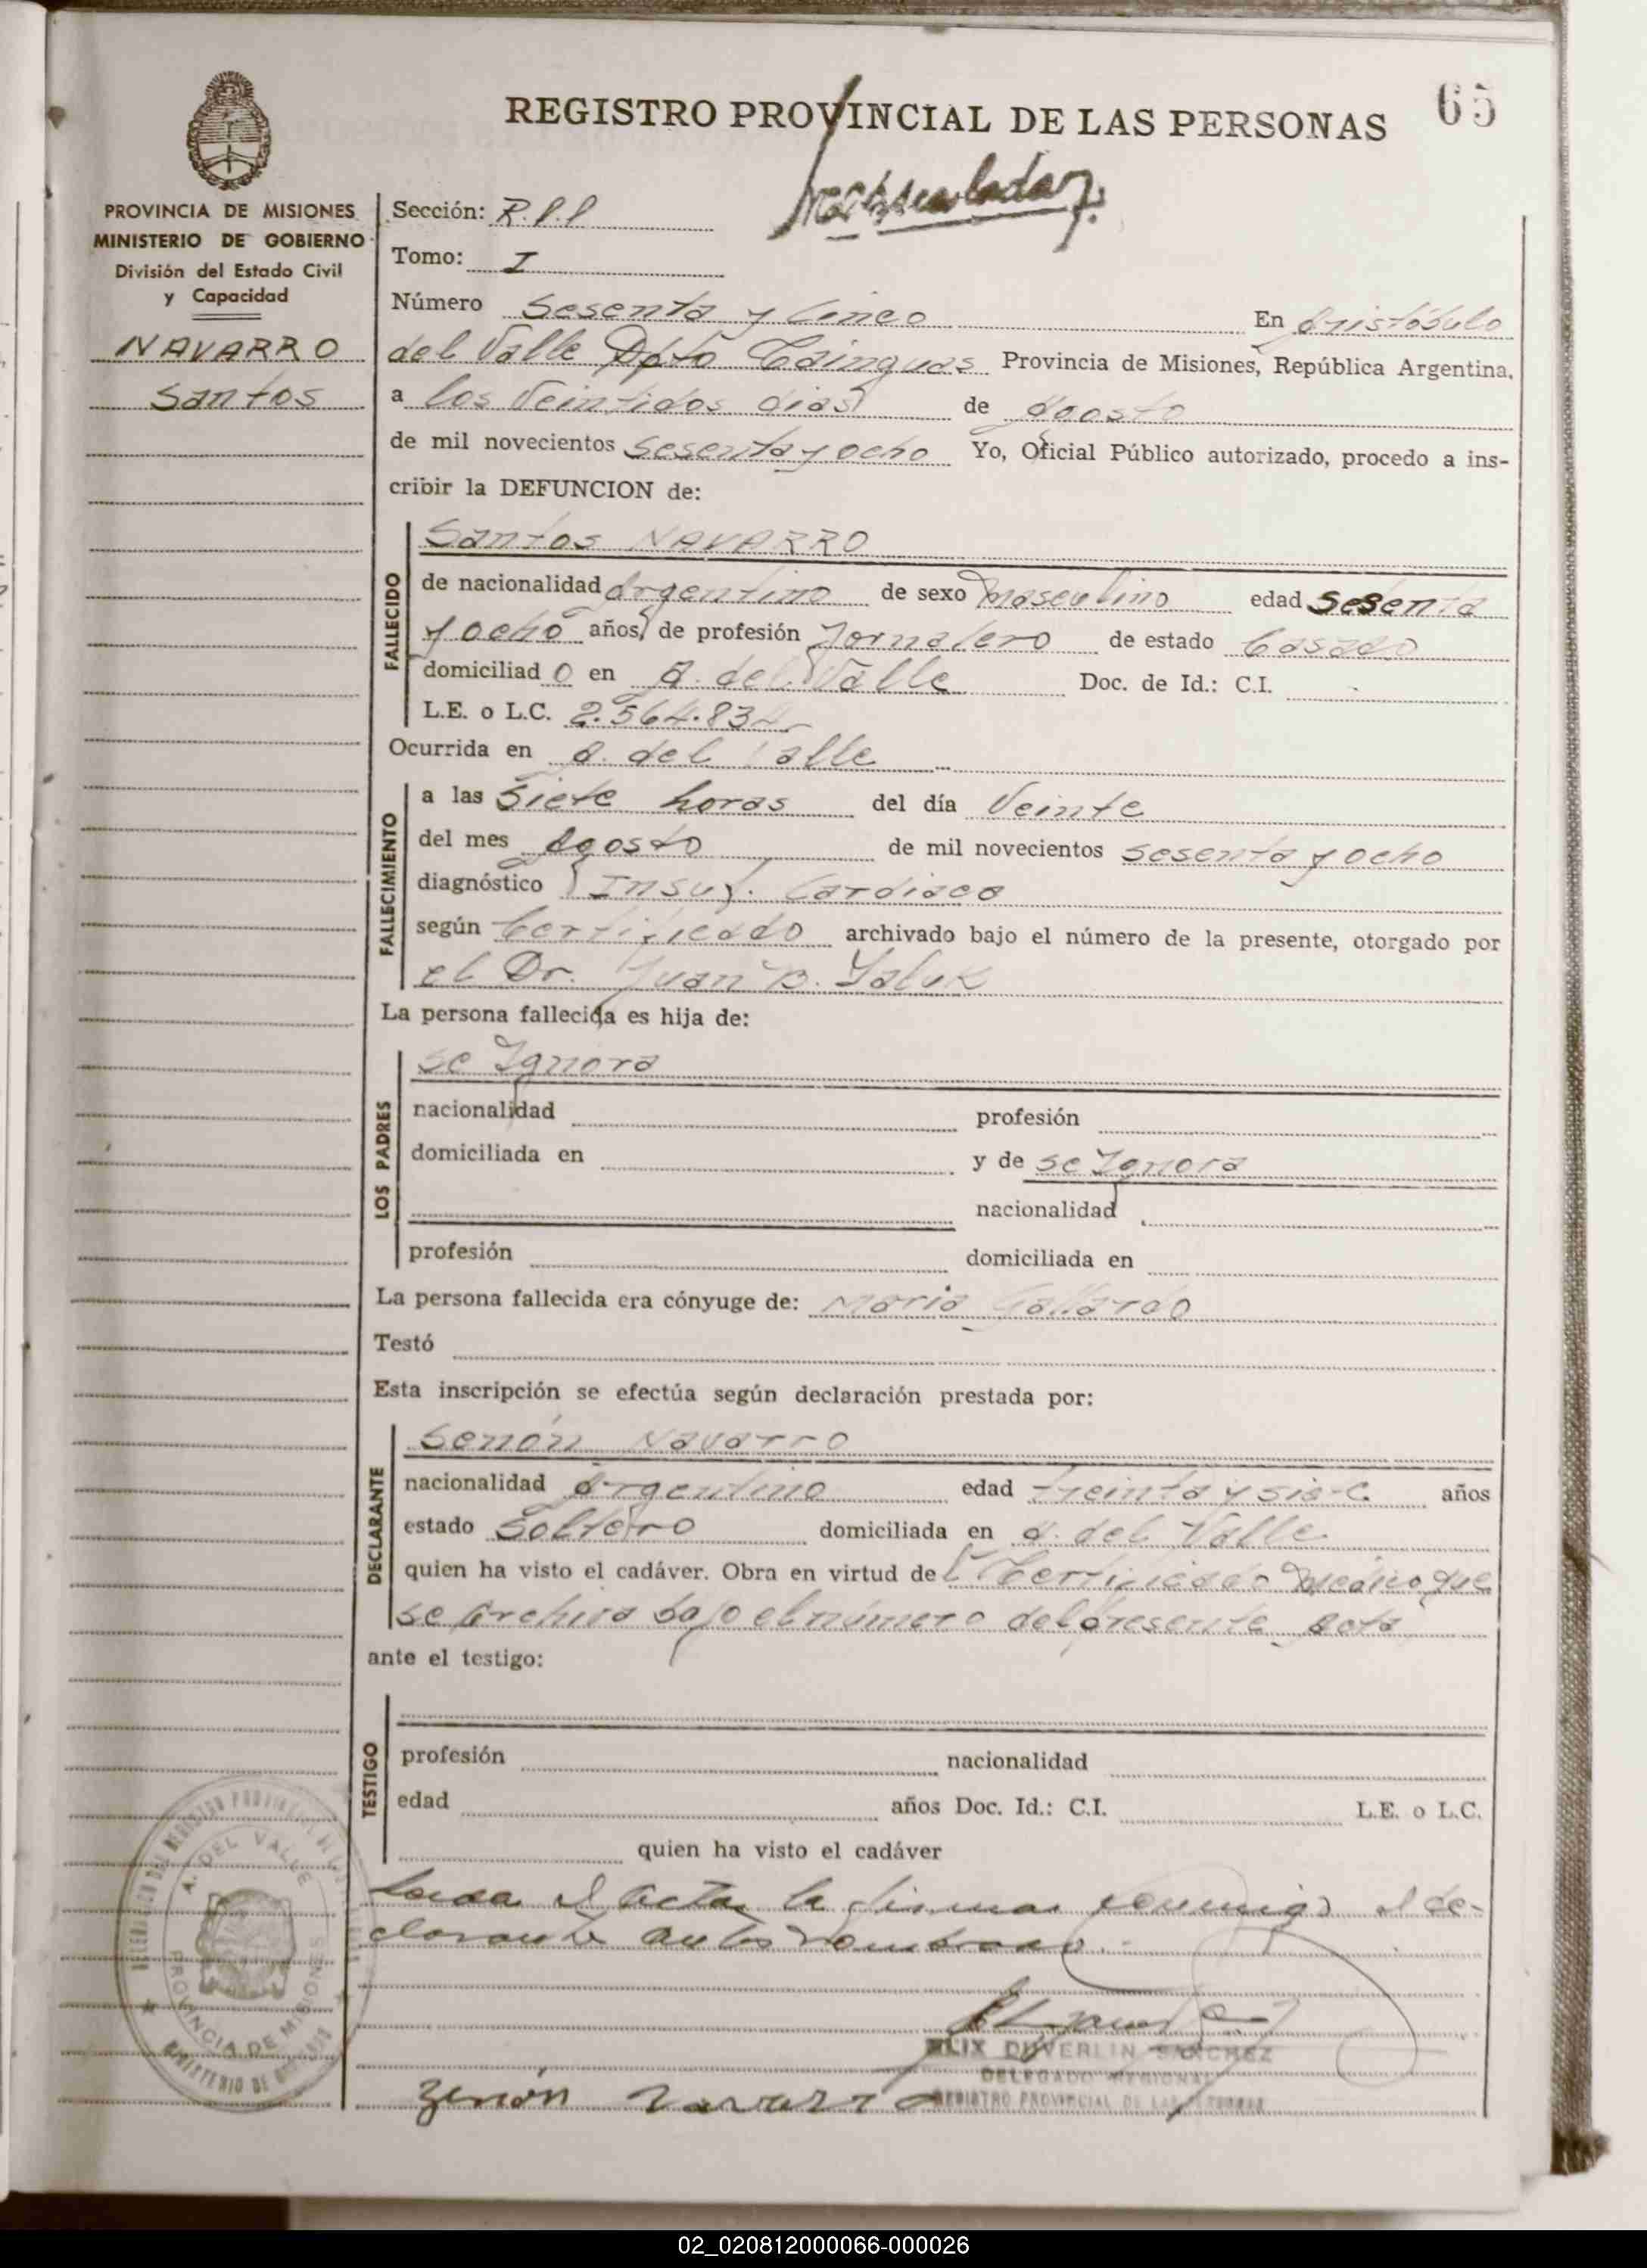 65
REGISTRO PROVINCIAL DE LAS PERSONAS
PROVINCIA DE MISIONES
MINISTERIO DE GOBIERNO
División del Estado Civil
y Capacidad
NAVARRO
Santos
Sección: R.P.P
Tomo: I
Número Sesenta y Cinco En Aristóbulo
del Valle Dpto Cainguas Provincia de Misiones, República Argentina,
a los Veintidos dias de Agosto
de mil novecientos Sesenta y ocho Yo, Oficial Público autorizado, procedo a ins-
cribir la DEFUNCION de:
FALLECIDO
Santos NAVARRO
de nacionalidad Argentino de sexo Masculino edad Sesenta
y ocho años, de profesión Jornalero de estado Casado
domiciliad o en A. del Valle Doc. de Id.: C.I.
L.E. o L.C. 2.564.834
Ocurrida en A. del Valle
FALLECIMIENTO
a las Siete horas del día Veinte
del mes Agosto de mil novecientos sesenta y ocho
diagnóstico Insuf. Cardiaca
según Certificado archivado bajo el número de la presente, otorgado por
el Dr. Juan B.
La persona fallecida es hija de:
LOS PADRES
se Ignora
nacionalidad profesión
domiciliada en y de se Ignora
nacionalidad
profesión domiciliada en
La persona fallecida era cónyuge de: Maria Gallardo
Testó
Esta inscripción se efectúa según declaración prestada por:
DECLARANTE
Senón Navarro
nacionalidad Argentino edad treinta y años
estado Soltero domiciliada en A. del Valle
quien ha visto el cadáver. Obra en virtud del Certificado Medico que
se Archiva bajo el número del presente Acta
ante el testigo:
TESTIGO
profesión nacionalidad
edad años Doc. Id.: C.I. L.E. o L.C.
quien ha visto el cadáver
Leida el Acta, la firma conmigo el de-
clarante antes nombrado.
DUVERLIN SANCHEZ
DELEGADO REGIONAL
REGISTRO PROVINCIAL DE LAS PERSONAS
Zenón Navarro
A. DEL VALLE
PROVINCIA DE MISIONES
02_020812000066-000026